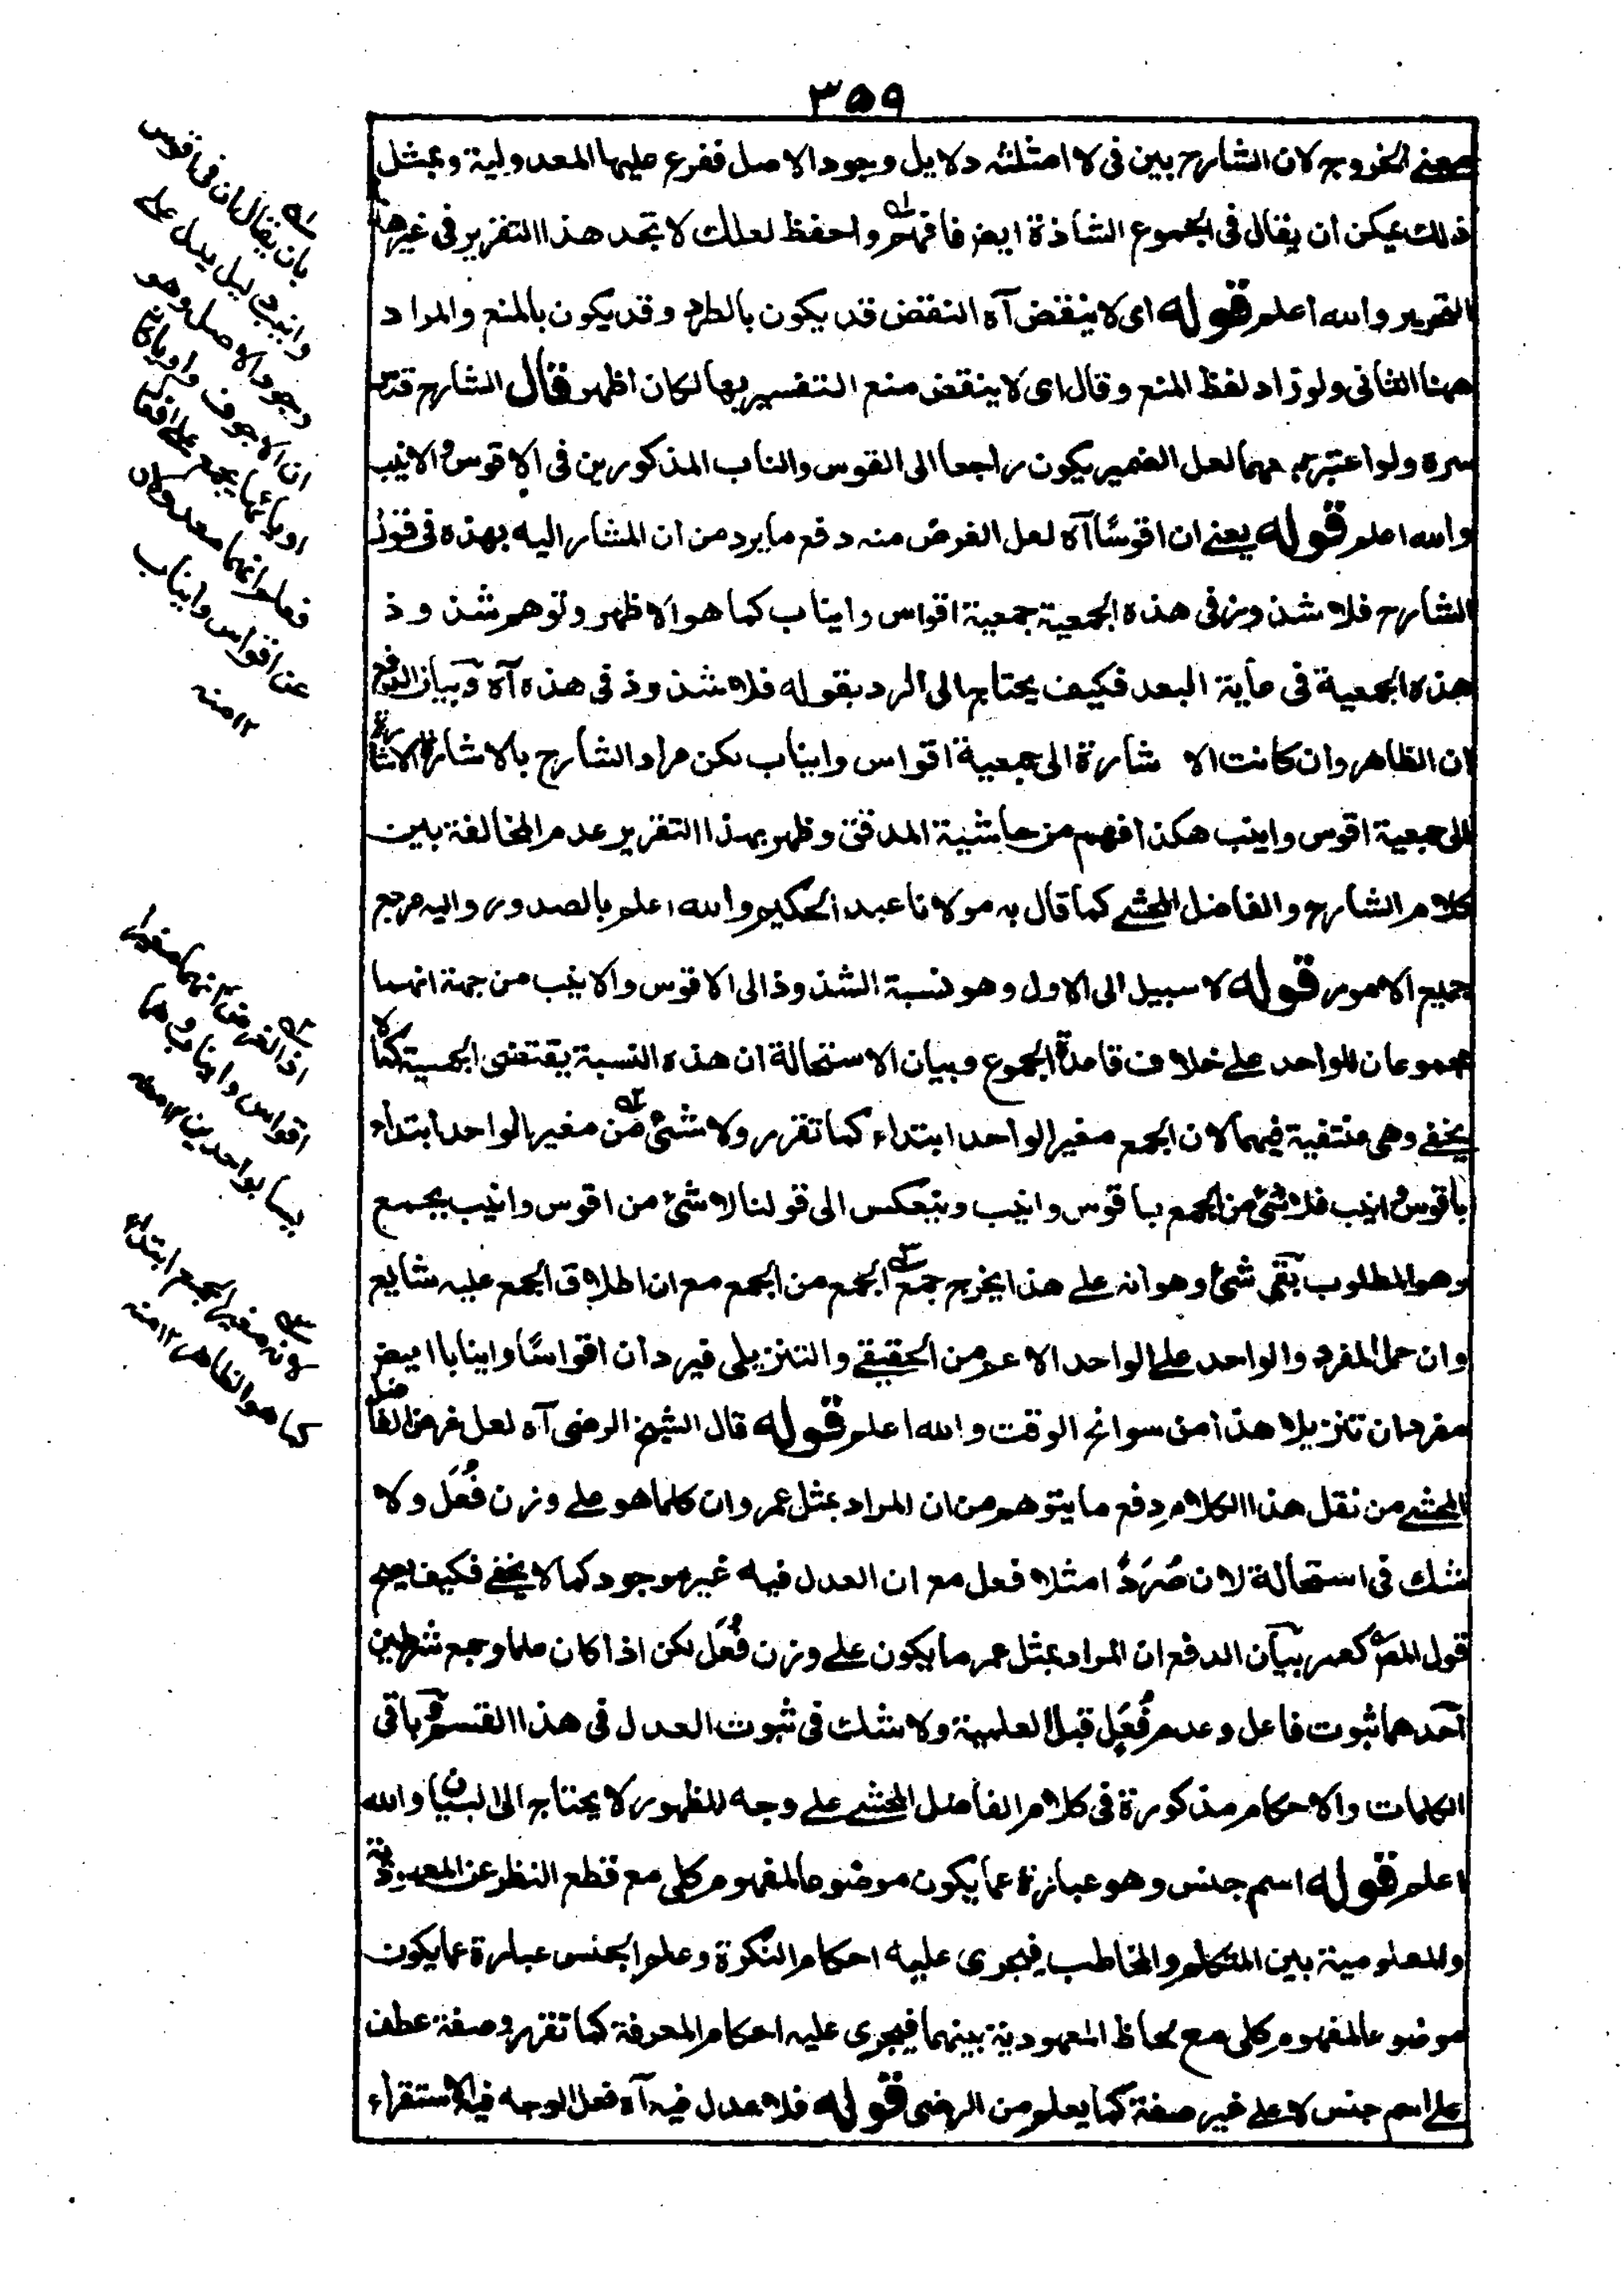 ٣٥٩
معنے الخروج لان الشارح بين فى لا امثلته دلايل وجود الاصل ففرع عليها المعدولية وبمثل
ذلك يمكن ان يقال فى الجموع الشاذة ايض فافهم واحفظ لعلك لا تجد هذا التقرير فى غير هذا
التحرير والله اعلم قوله اى لا ينقض آه النقض قد يكون بالطرد وقد يكون بالمنع والمراد
ههنا الثانى ولو زاد لفظ المنع وقال اى لا ينقض منع التفسير بها لكان اظهر قال الشارح قدس
سره ولو اعتبر جمعهما لعل الضمير يكون راجعا الى القوس والناب المذكورين فى الاقوس والانيب
والله اعلم قوله يعنے ان اقوسًا آه لعل الغرض منه دفع ما يرد من ان المشار اليه بهذه فى قول
الشارح فلا شذوذ فى هذه الجمعية جمعية اقواس وانياب كما هو الاظهر وتوهم شذوذ
هذه الجمعية فى غاية البعد فكيف يحتاج الى الرد بقوله فلا شذوذ فى هذه آه وبيان الدفع
ان الظاهر وان كانت الاشارة الى جمعية اقواس وانياب لكن مراد الشارح بالاشارة الاشارة
الى جمعية اقوس وانيب هكذا فهم من حاشية المدقق وظهر بهذا التقرير عدم المخالفة بين
كلام الشارح والفاضل المحشے كما قال به مولانا عبد الحكيم والله اعلم بالصدور واليه مرجع
جميع الامور قوله لا سبيل الى الاول وهو نسبة الشذوذ الى الاقوس والانيب من جهة انهما
مجموعان للواحد علے خلاف قاعدة الجموع وبيان الاستحالة ان هذه النسبة يقتضى الجمعية كما لا
يخفے وهى منتفية فيهما لان الجمع مغير الواحد ابتداء كما تقرر ولا شئ من مغير الواحد ابتداء
باقوس وانيب فلا شئ من الجمع باقوس وانيب وينعكس الى قولنا لا شئ من اقوس وانيب بجمع
وهو المطلوب بقى شئ وهو انه علے هذا يخرج جمع الجمع من الجمع مع ان اطلاق الجمع عليه شايع
وان حمل المفرد والواحد علے الواحد الاعم من الحقيقے والتنزيلى فيرد ان اقواسًا وانيابا ايض
مفردان تنزيلا هذا من سوانح الوقت والله اعلم قوله قال الشيخ الرضى آه لعل غرض الفاضل
المحشے من نقل هذا الكلام دفع ما يتوهم من ان المراد بمثل عمر وان كلما هو علے وزن فُعَل ولا
شك فى استحالة لان صُرَدًا مثلا فعل مع ان العدل فيه غير موجود كما لا يخفے فكيف يصح
قول المصرح كعمر بيان الدفع ان المراد بمثل عمر ما يكون علے وزن فُعَل لكن اذا كان علما وجمع شرطين
احدهما ثبوت فاعل وعدم فُعَل قبل العلمية ولا شك فى ثبوت العدل فى هذا القسم وباقى
الكلمات والاحكام مذكورة فى كلام الفاضل المحشے علے وجه الظهور لا يحتاج الى البيان والله
اعلم قوله اسم جنس وهو عبارة عما يكون موضوعا لمفهوم كلى مع قطع النظر عن المعهودية
والمعلومية بين المتكلم والمخاطب فيجرى عليه احكام النكرة وعلم الجنس عبارة عما يكون
موضوعا لمفهوم كلى مع لحاظ المعهودية بينهما فيجرى عليه احكام المعرفة كما تقرر وصفة عطف
علے اسم جنس لا علے غير صفة كما يعلم من الرضى قوله فلا عدل فيه آه فعل الوجه فيه الاستقراء
بان يقال ان فى اقوس
وانيب دليل يدل علے
وجود الاصل وهو
ان الاجوف واويا كان
او يائيا يجمع علے افعال
فعلم انهما معدولان
عن اقواس وانياب
١٢ منه
اذ الغرض انهما مغيرا
اقواس وانياب وهما
ليسا بواحدين ١٢ منه
لانه مغير الجمع ابتداء
كما هو الظاهر ١٢ منه